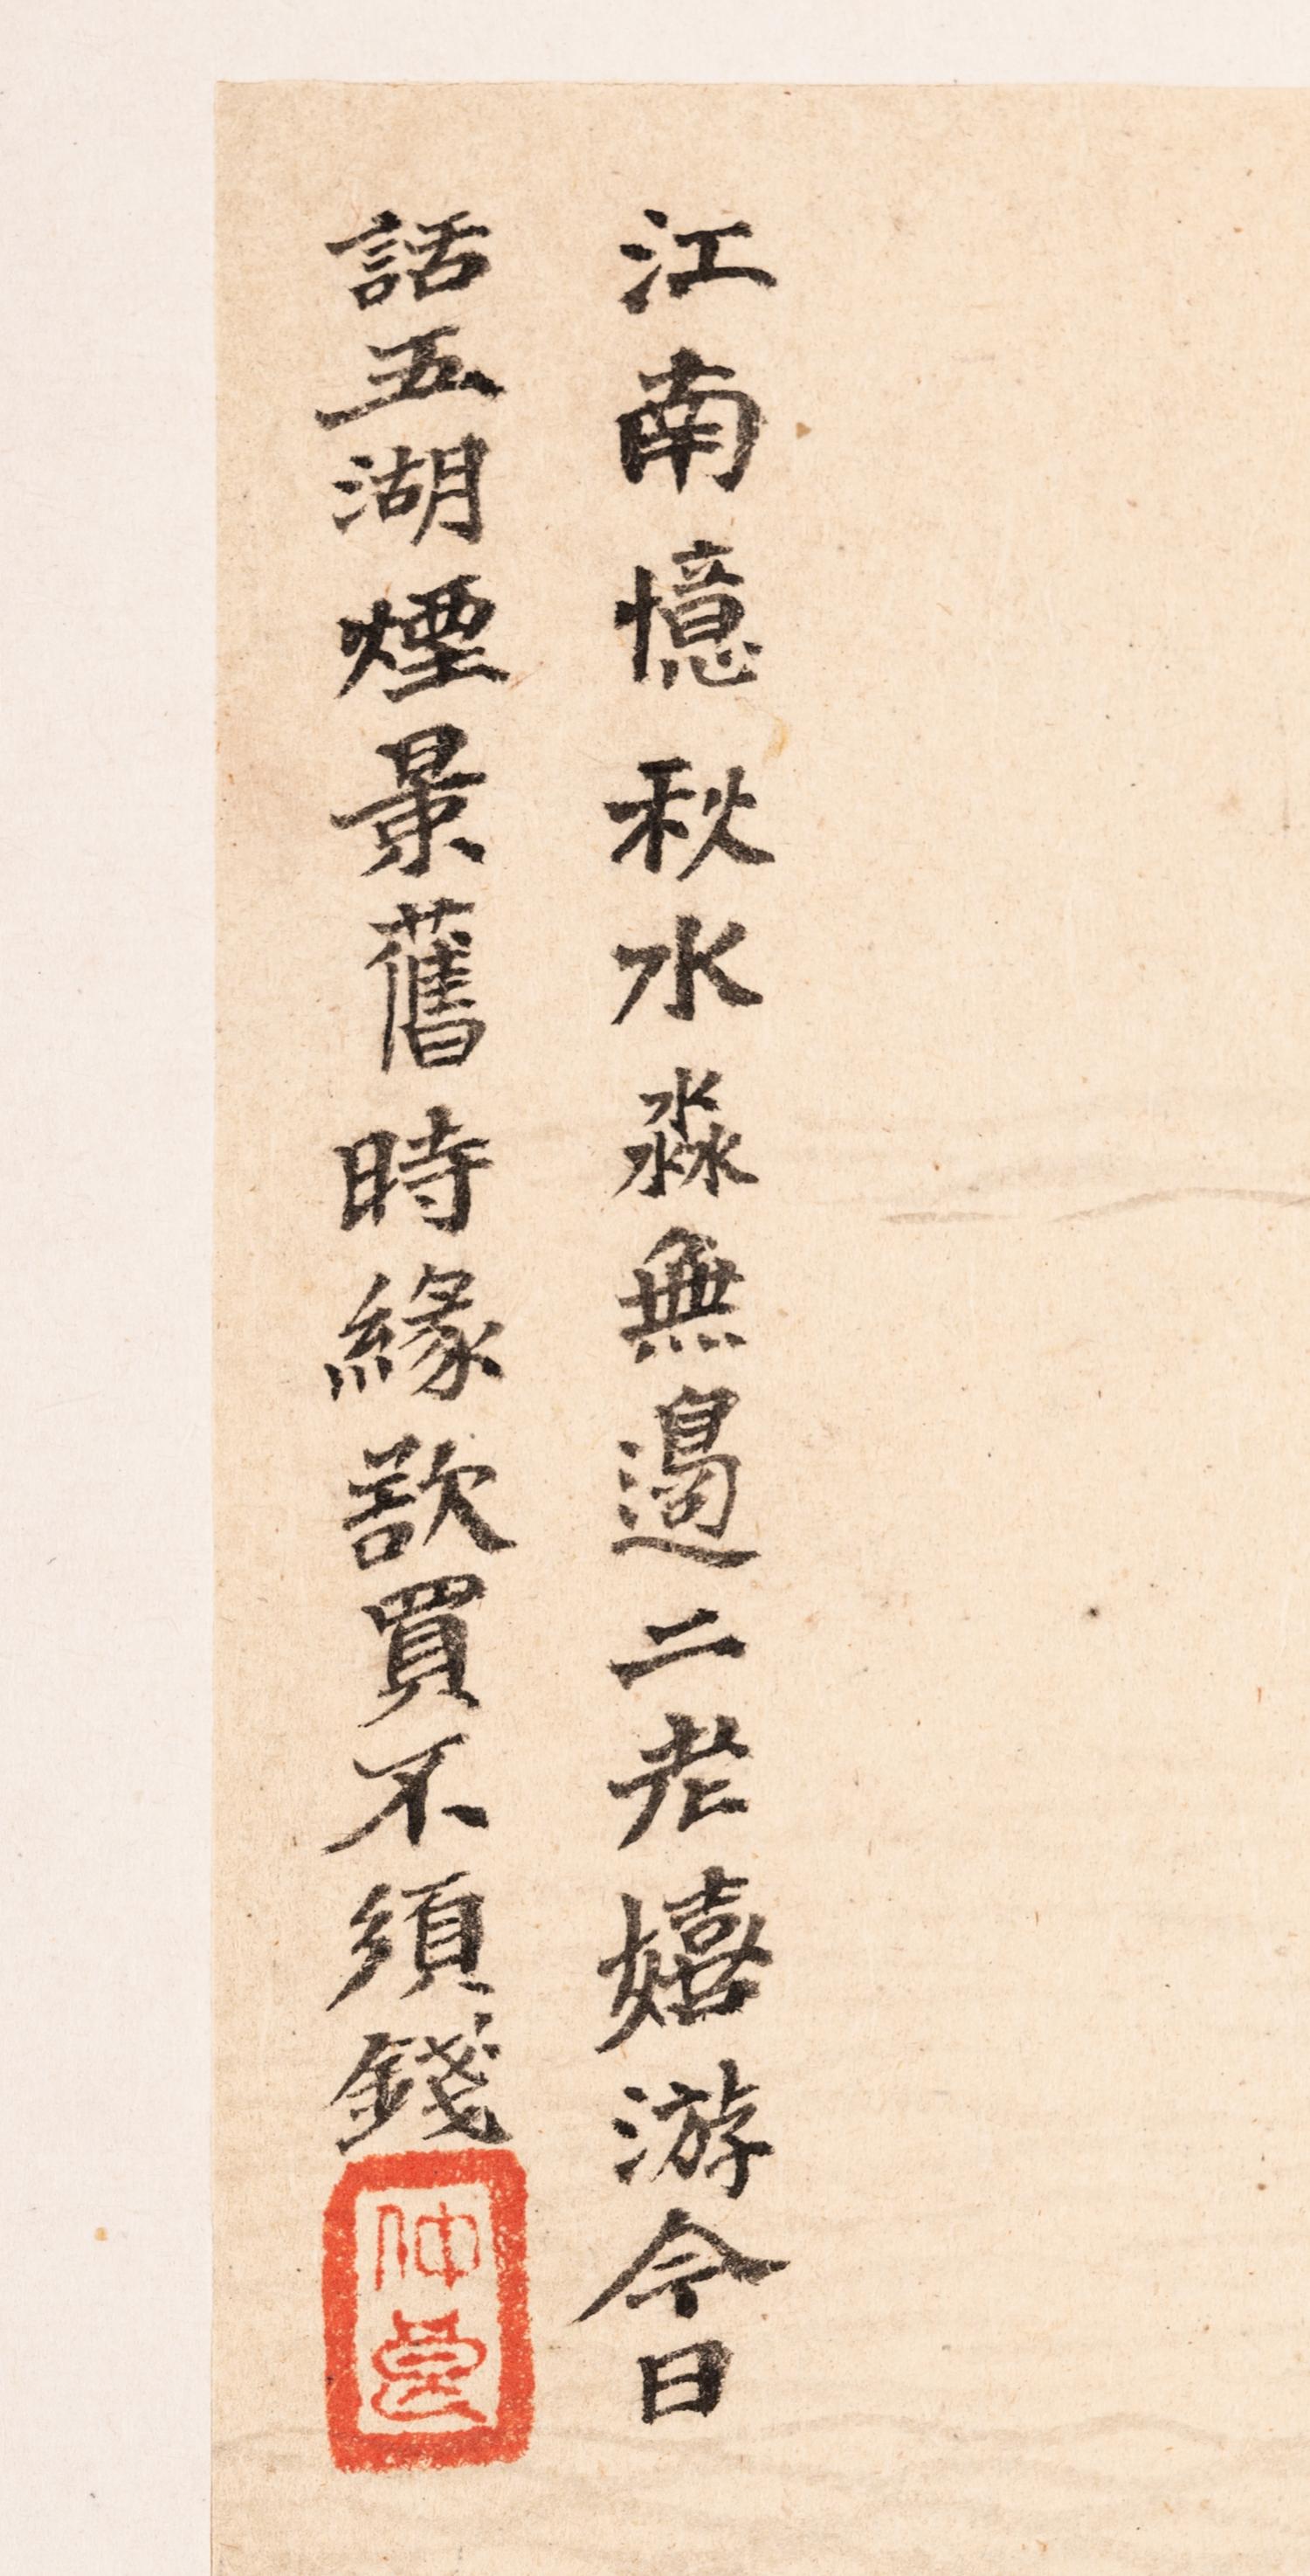 江南憶秋水淼無邊二老嬉游今日
話五湖煙景舊時緣欲買不須錢
仲